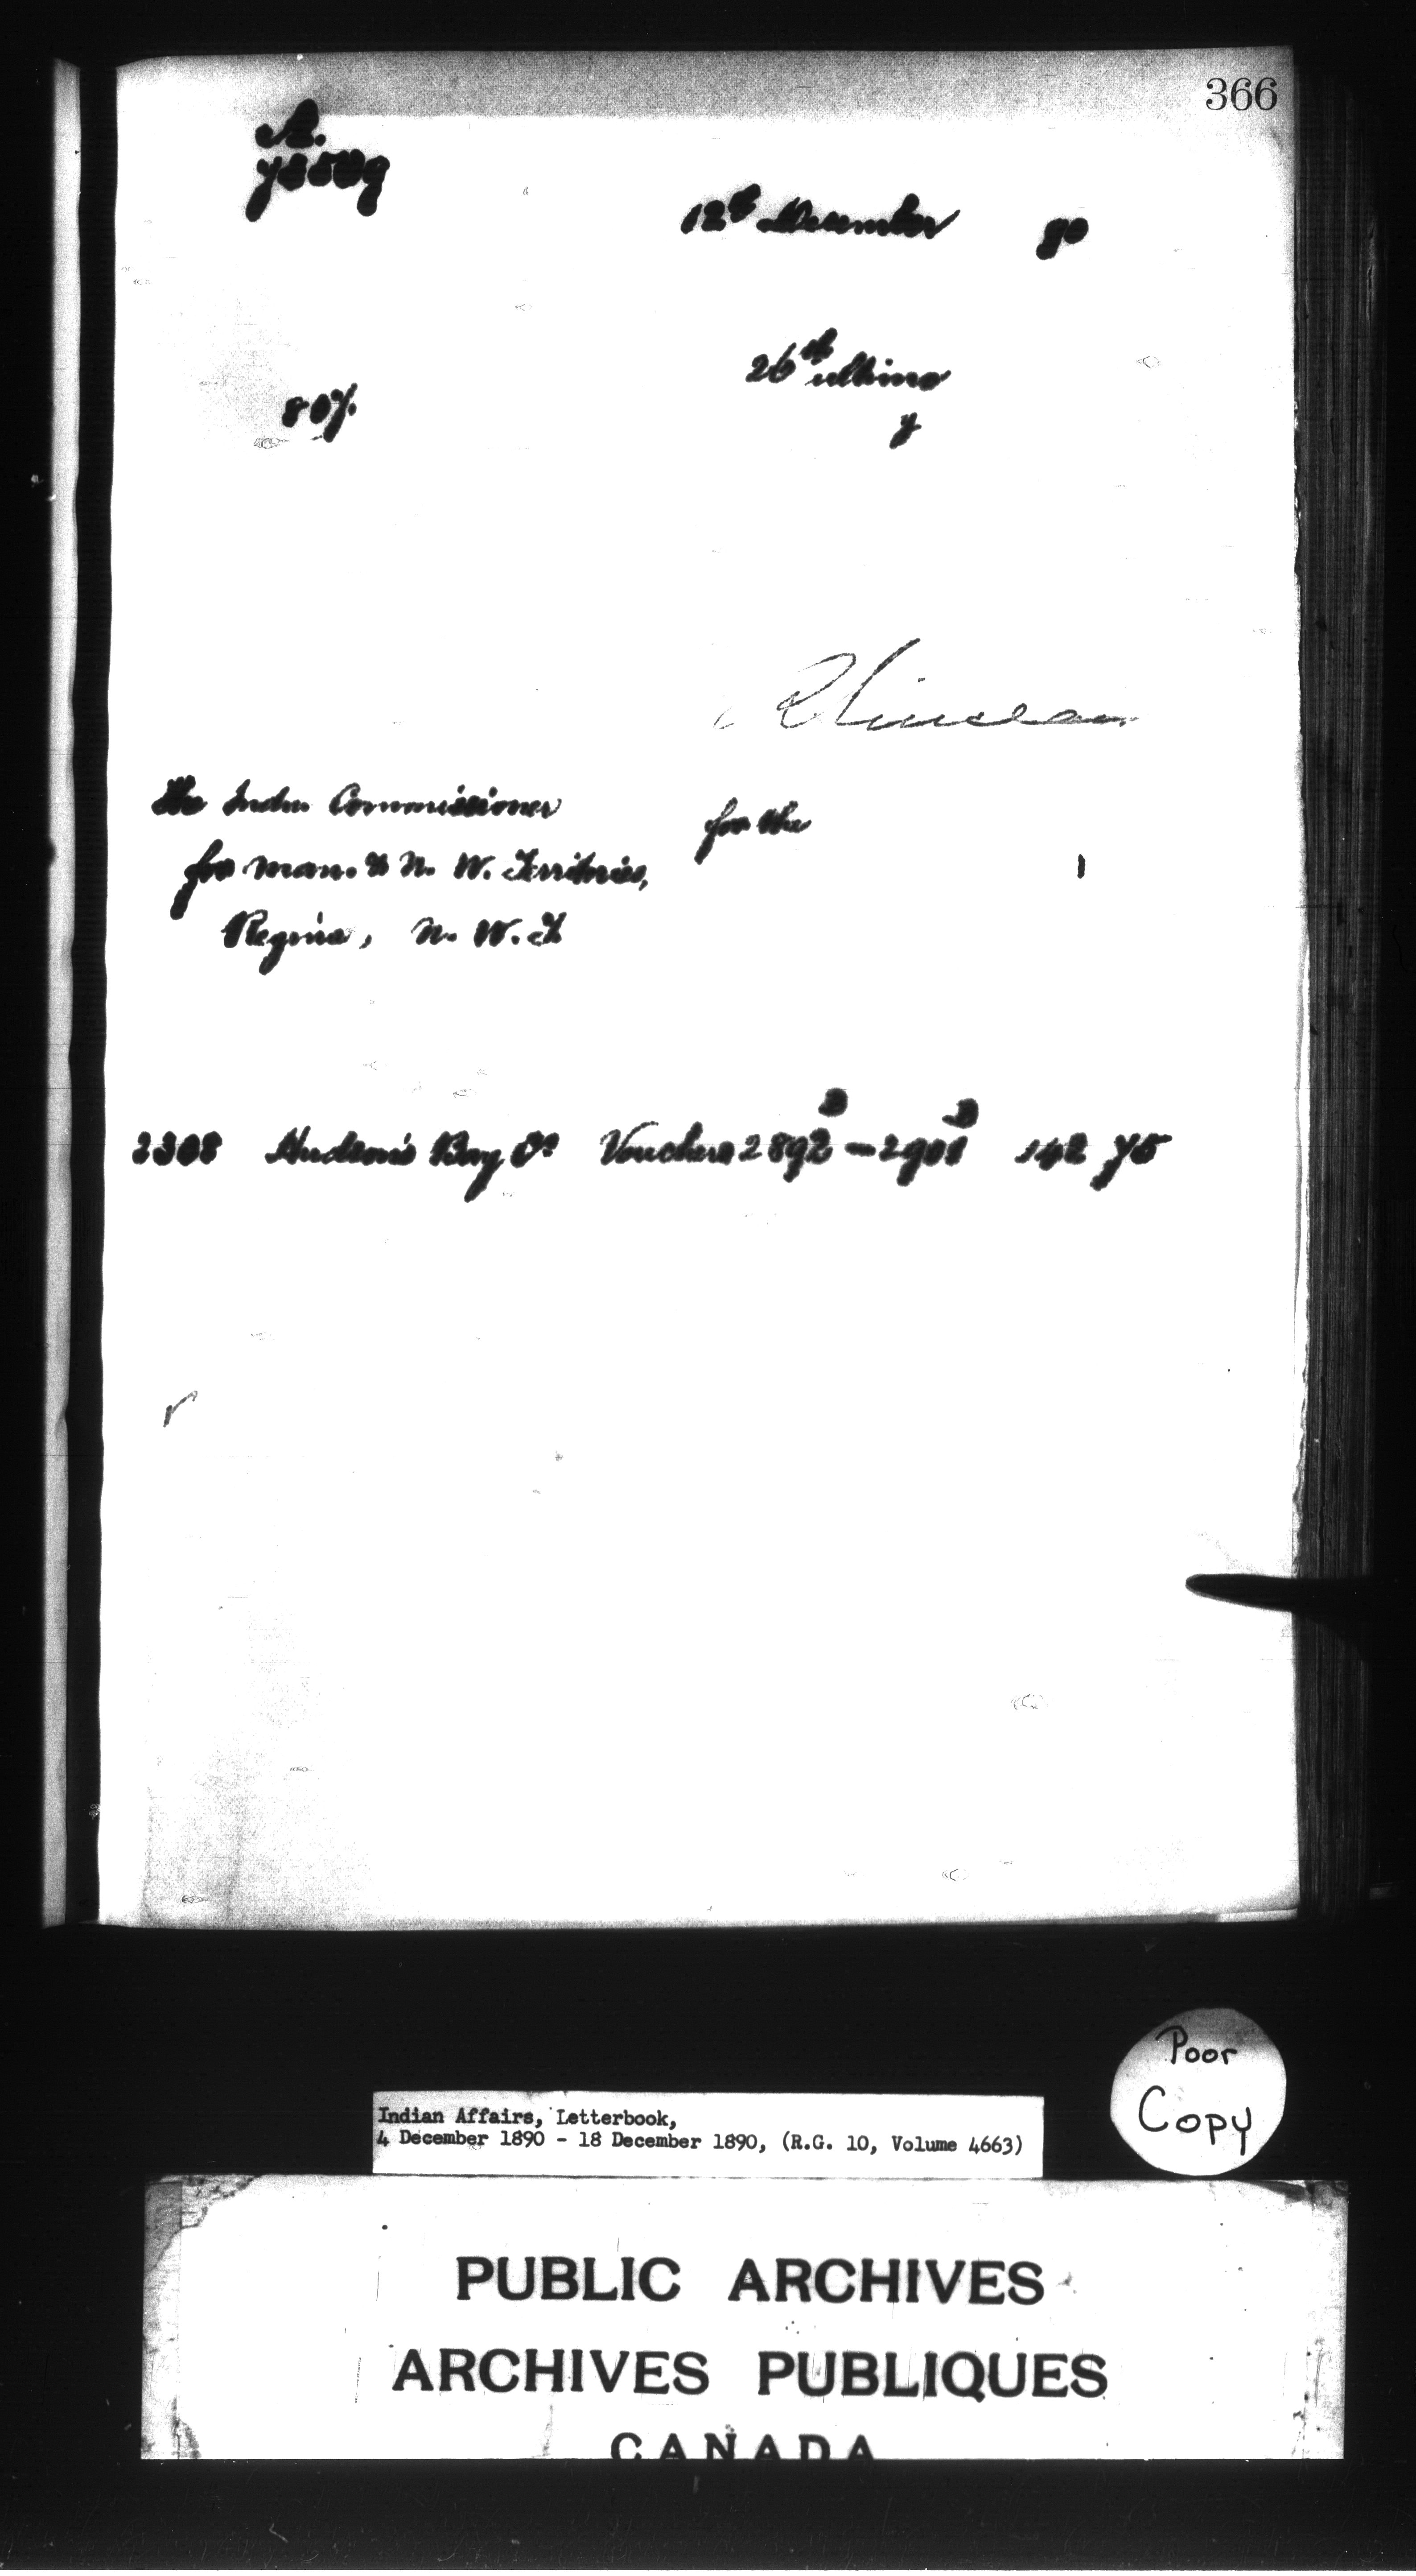 366
A.
12th December 90
26th ultimo
807.
y
The Indn. Commissioner
for the
for Man. & N. W. Territories,
Regina, N. W. T
2308 Hudson's Bay Co Vouchers 2892 B - 2901 B 142 75
Poor
Copy
Indian Affairs, Letterbook,
4 December 1890 - 18 December 1890, (R.G. 10, Volume 4663)
PUBLIC ARCHIVES
ARCHIVES PUBLIQUES
CANADA